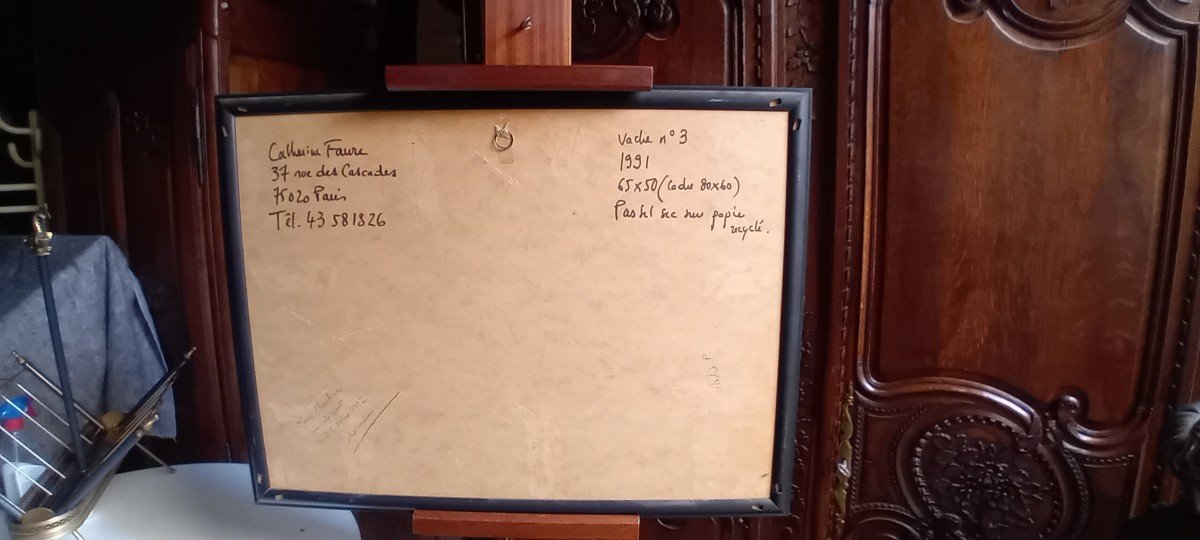 Catherine Faure
37 rue des Cascades
75020 Paris
Tél. 43 581826
Vache n° 3
1991
65x50 (Cadre 80x60)
Pastel sec sur papier
recyclé.